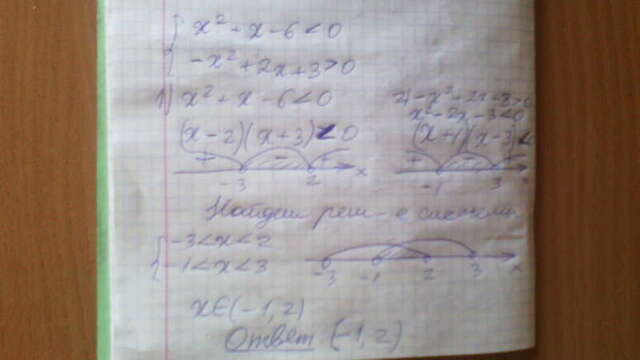 x² + x - 6 < 0
-x² + 2x + 3 > 0
1) x² + x - 6 < 0
(x - 2)(x + 3) < 0
+ - +
-3 2 x
2) -x² + 2x + 3 > 0
x² - 2x - 3 < 0
(x + 1)(x - 3) <
+ - +
-1 3
Найдем реш-е системы
-3 < x < 2
-1 < x < 3
-3 -1 2 3 x
x ∈ (-1, 2)
Ответ (-1, 2)